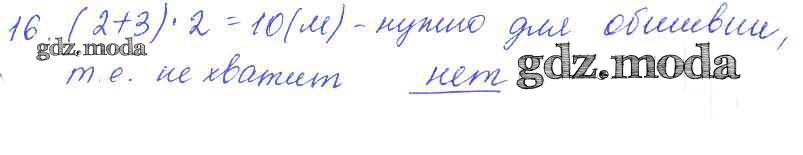 16. (2+3)·2 = 10(м) - нужно для обшивки,
gdz.moda
т.е. не хватит нет gdz.moda